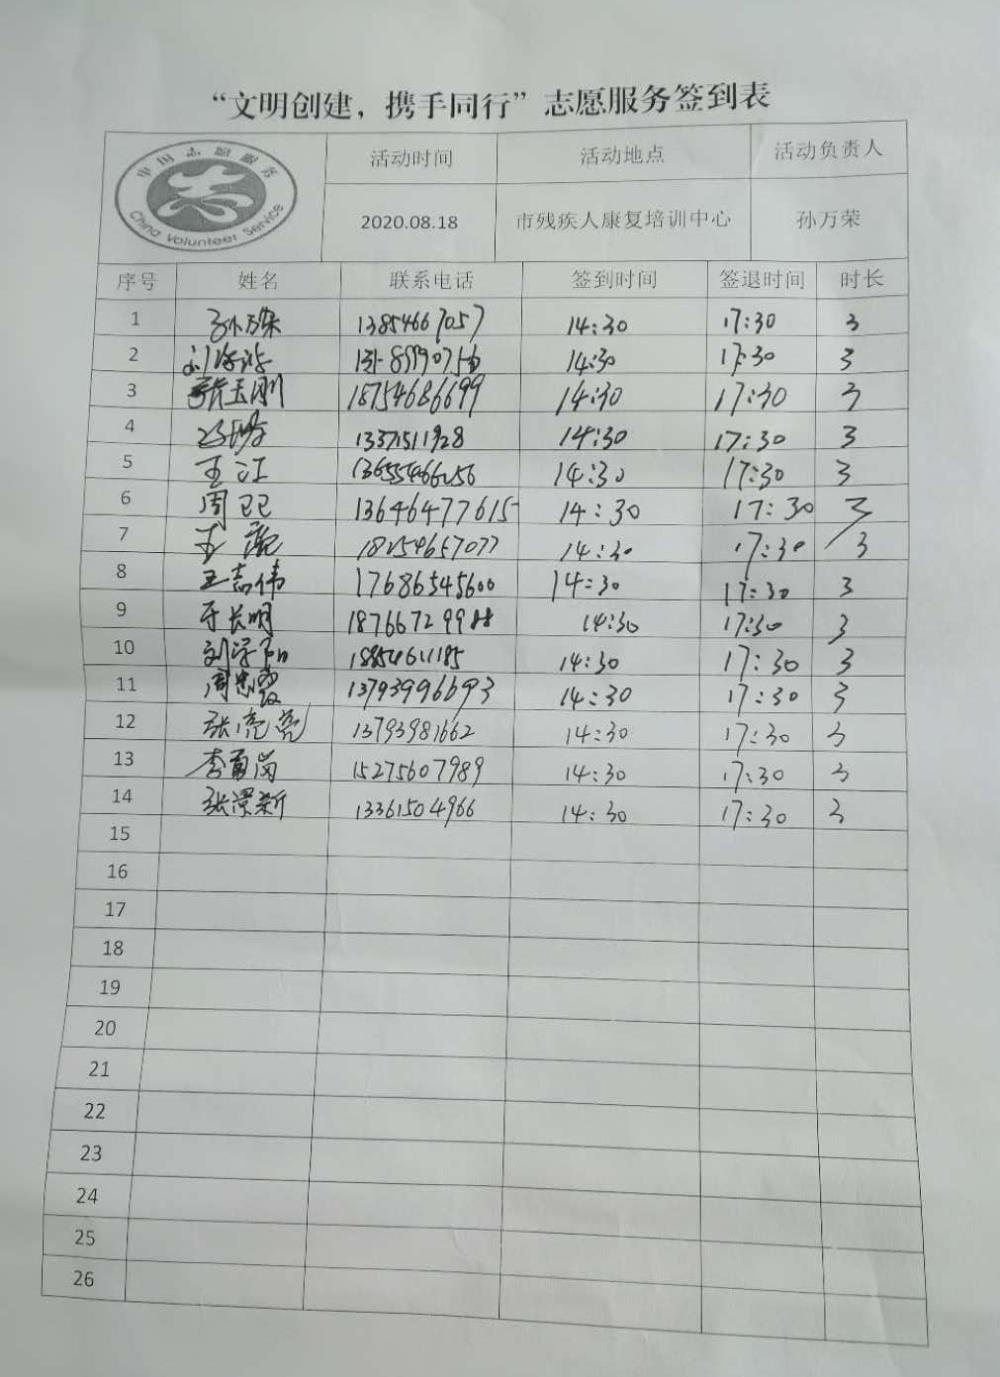 “文明创建，携手同行”志愿服务签到表
中国志愿服务
China Volunteer Service
活动时间 活动地点 活动负责人
2020.08.18 市残疾人康复培训中心 孙万荣
序号 姓名 联系电话 签到时间 签退时间 时长
1 孙万荣 13854667057 14:30 17:30 3
2 14:30 17:30 3
3 18754686699 14:30 17:30 3
4 13371511928 14:30 17:30 3
5 王江 14:30 17:30 3
6 周卫卫 13646477615 14:30 17:30 3
7 18254657077 14:30 17:30 3
8 王志伟 17686545600 14:30 17:30 3
9 于长明 18766729988 14:30 17:30 3
10 14:30 17:30 3
11 周忠霞 13793996693 14:30 17:30 3
12 张亮亮 13793981662 14:30 17:30 3
13 15275607989 14:30 17:30 3
14 13361504966 14:30 17:30 3
15
16
17
18
19
20
21
22
23
24
25
26